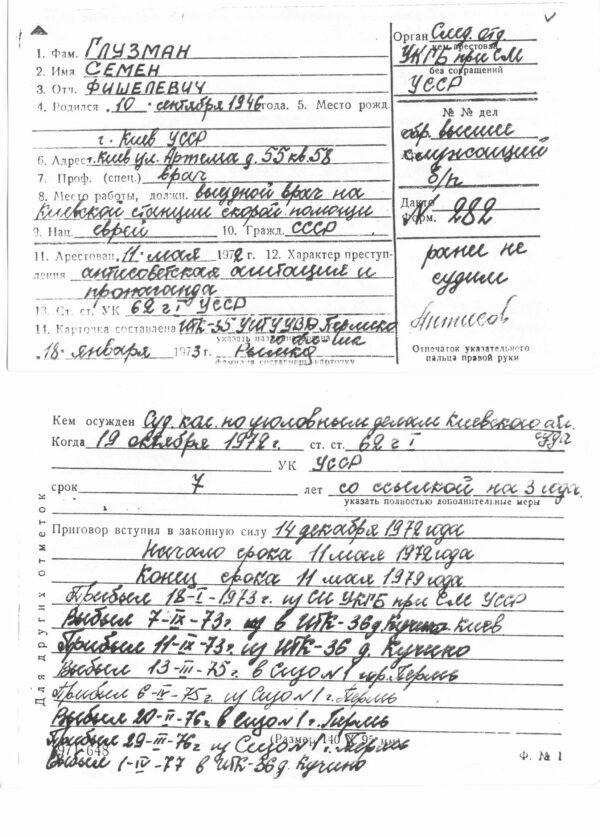 1. Фам. ГЛУЗМАН
2. Имя СЕМЕН
3. Отч. ФИШЕЛЕВИЧ
4. Родился 10 сентября 1946 года. 5. Место рожд.
г. Киев УССР
6. Адрес г. Киев ул. Артема д. 55 кв. 58
7. Проф. (спец.) врач
8. Место работы, должн. выездной врач на
Киевской станции скорой помощи
9. Нац. еврей 10. Гражд. СССР
11. Арестован 11 мая 1972 г. 12. Характер преступ-
ления антисоветская агитация и
пропаганда
13. Ст. ст. УК 62 ч I УССР
14. Карточка составлена ИТК-35 УИТУ УВД Пермско
18 января 1973 г.
фамилия составившего карточку
Орган След. отд.
кем арестован
УКГБ при СМ
без сокращений
УССР
№ № дел
обр. высшее
служащий
б/п
Дакто
форм. 282
ранее не
судим
Отпечаток указательного
пальца правой руки
Кем осужден Суд. кол. по уголовным делам Киевского обл.
суда
Когда 19 октября 1972 г. ст. ст. 62 ч I
УК УССР
срок 7 лет со ссылкой на 3 года
указать полностью дополнительные меры
Приговор вступил в законную силу 14 декабря 1972 года
Начало срока 11 мая 1972 года
Конец срока 11 мая 1979 года
Прибыл 18-I-1973 г. из СИ УКГБ при СМ УССР
Выбыл 7-IX-73 г. в ИТК-36 д. Кучино Киев
Прибыл 11-IX-73 г. из ИТК-36 д. Кучино
Выбыл 13-III-75 г. в Сизо №1 гор. Пермь
Прибыл 6-IV-75 г. из Сизо №1 г. Пермь
Выбыл 20-II-76 г. в Сизо №1 г. Пермь
Прибыл 29-III-76 г из Сизо №1 г. Пермь
(Размер 140 × 95 мм)
Выбыл 1-IV-77 в ИТК-36 д. Кучино
Ф. № 1
Для других отметок